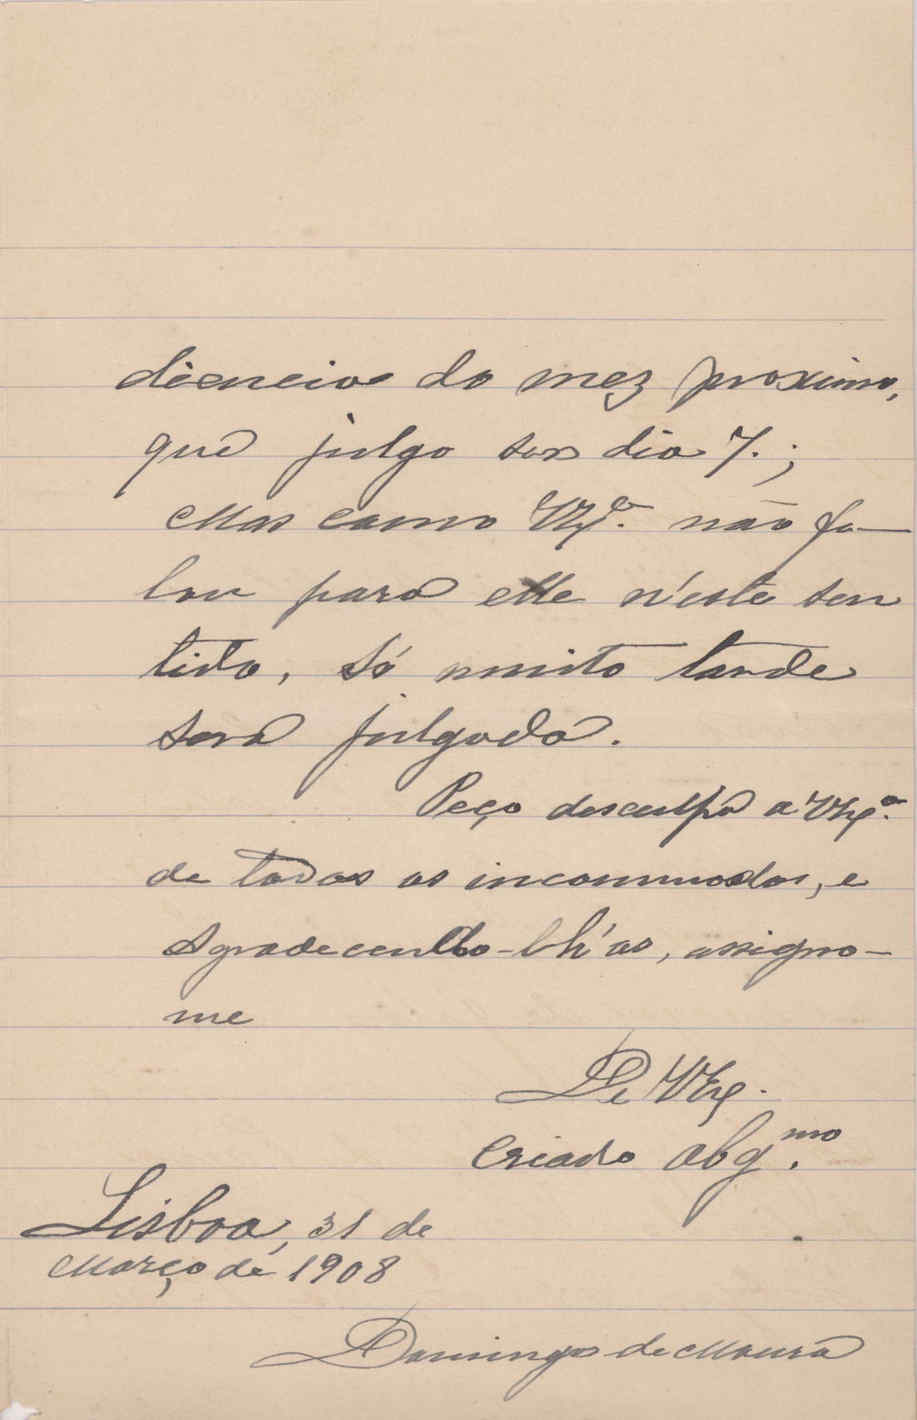 diencia do mez proximo,
que julgo ser dia 7.;
Mas como V. Ex.ª não fa-
lou para elle n'este sen
tido, só muito tarde
será julgado.
Peço desculpa a V. Ex.ª
de todos os incommodos, e
agradecendo-lh'os, assigno-
me
De V. Ex.
Criado obg.mo
Lisboa, 31 de
Março de 1908
Domingos de Moura